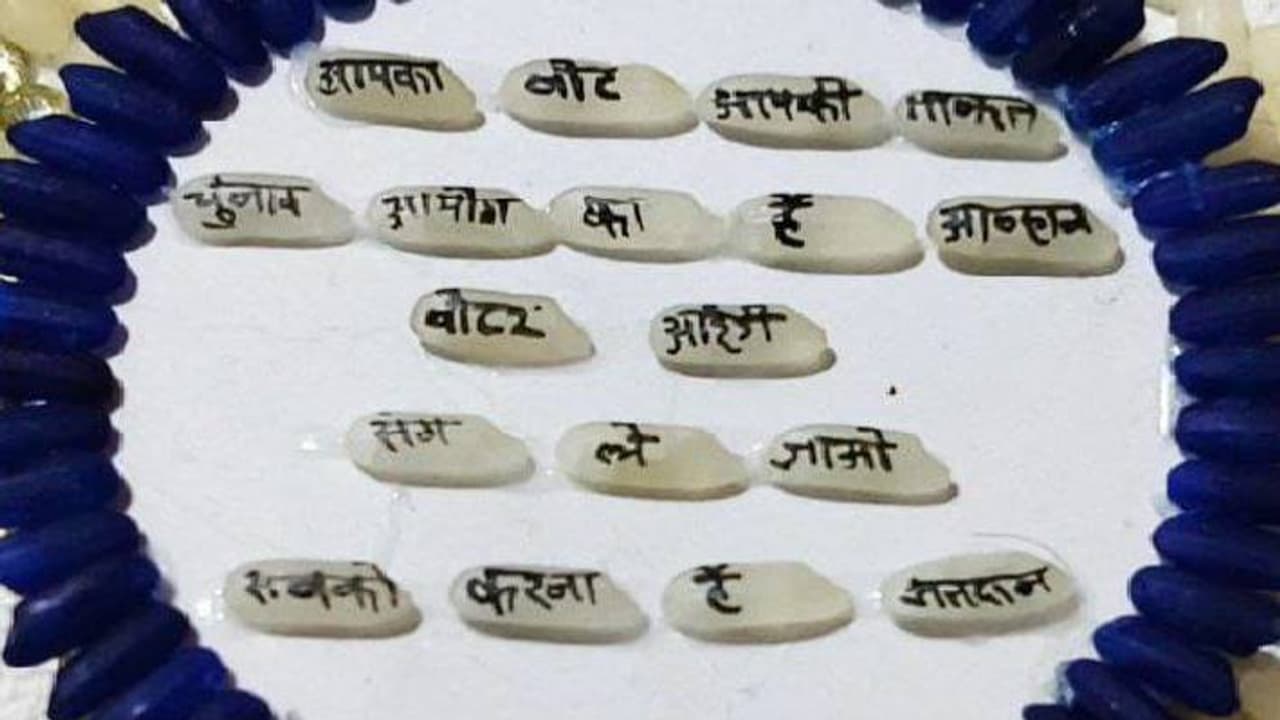 आपका वोट आपकी ताकत
चुनाव आयोग का है आव्हान
वोटर आईडी
संग ले जाओ
सबको करना है मतदान